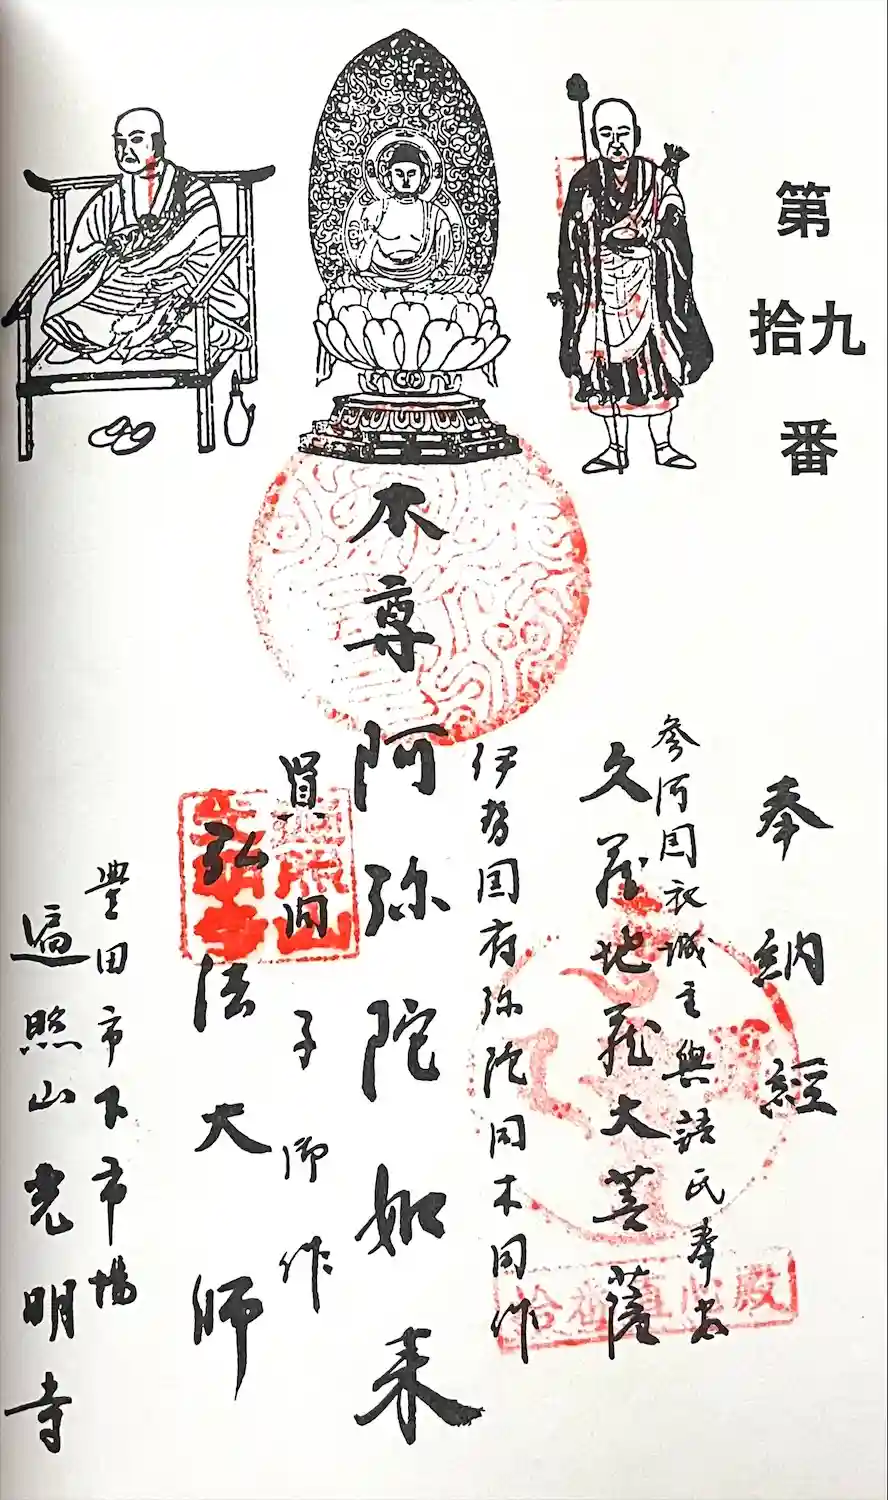 第
拾九
番
奉納経
参河国衣城主與語氏奉安
久麓地蔵大菩薩
伊勢国府弥陀同木同作
本尊
阿弥陀如来
賢問子御作
弘法大師
豊田市下市場
遍照山光明寺